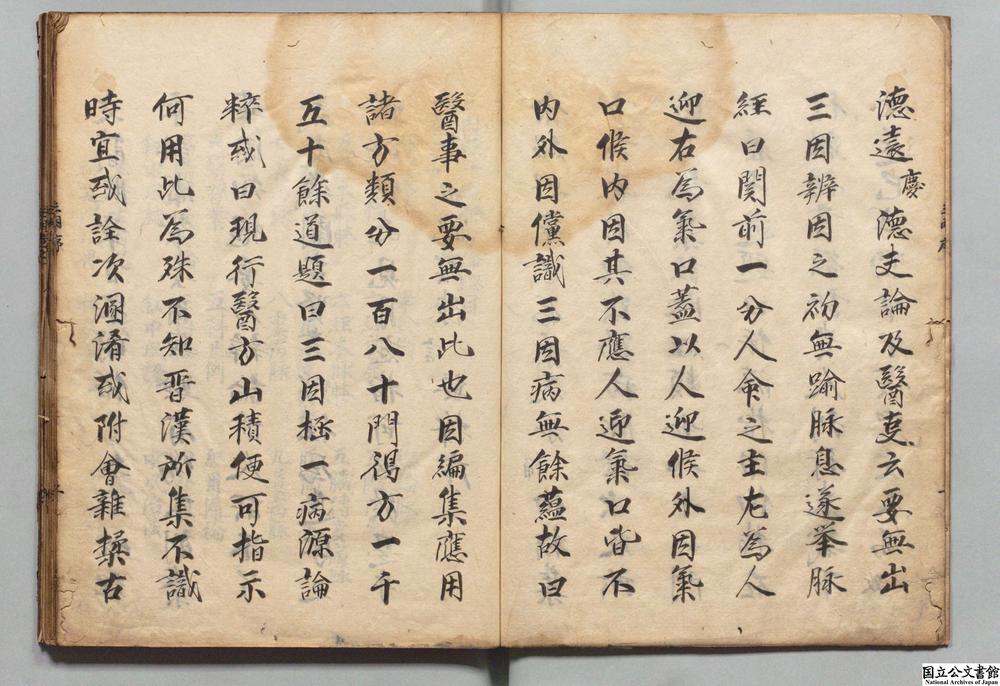 德遠慶德丈論及醫事云要無出
三因辨因之初無踰脉息遂举脉
經曰関前一分人命之主左為人
迎右為氣口蓋以人迎候外因氣
口候内因其不應人迎氣口皆不
内外因儻識三因病無餘蘊故曰
醫事之要無出此也因編集應用
諸方類分一百八十門得方一千
五十餘道題曰三因極一病源論
粹或曰現行醫方山積便可指示
何用此為殊不知晋漢所集不識
時宜或詮次溷淆或附會雜揉古
国立公文書館
National Archives of Japan